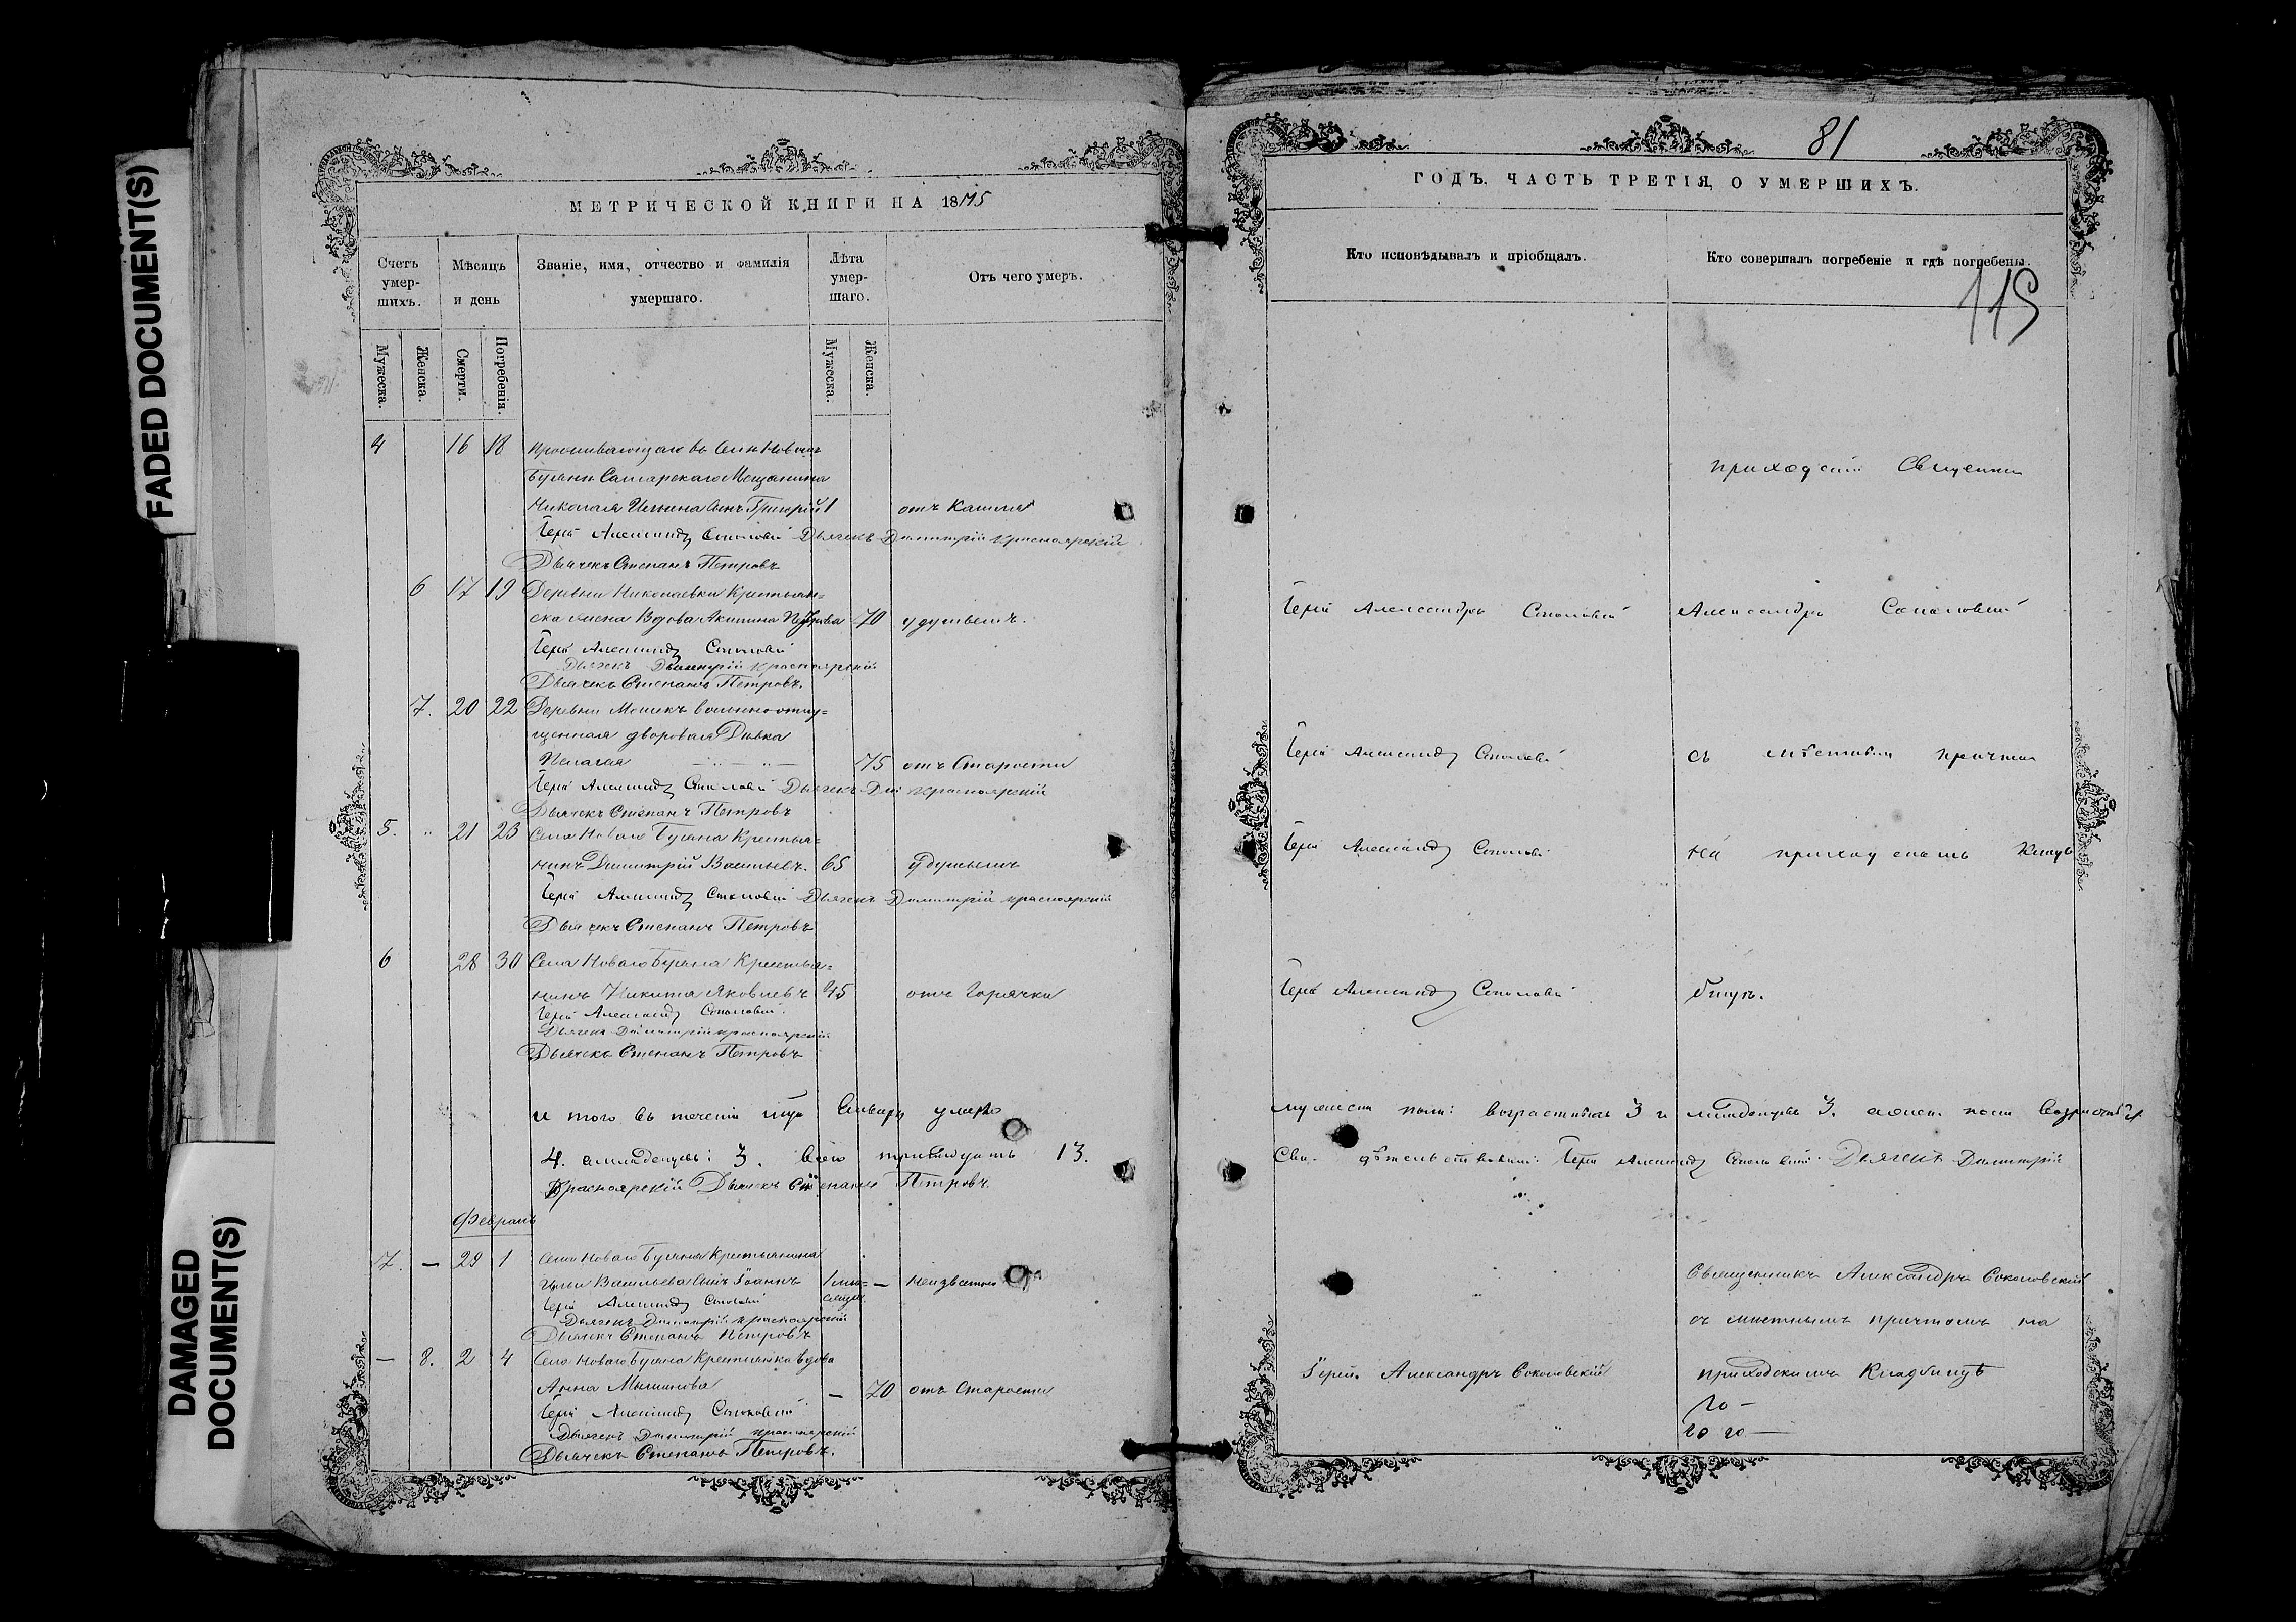 FADED DOCUMENT(S)
DAMAGED
DOCUMENT(S)
МЕТРИЧЕСКОЙ КНИГИ НА 1875
Счетъ
умер-
шихъ.
Мѣсяцъ
и день
Званіе, имя, отчество и фамилія
умершаго.
Лѣта
умер-
шаго.
Отъ чего умеръ.
Мужеска.
Женска.
Смерти.
Погребенія.
Мужеска.
Женска.
4 16 18 Проживающаго въ Селѣ Новомъ
Буянѣ Самарскаго Мещанина
Николая Ильина Сынъ Григорій 1 отъ Кашля
Іерей Александр Соколовскій Дьячекъ Димитрій Красноярскій
Дьячекъ Степанъ Петровъ
6 17 19 Деревни Николаевки Крестьян=
ская жена Вдова Акилина 70 удушьемъ.
Іерей Александр Соколовскій
Дьячекъ Димитрій Красноярскій
Дьячекъ Степанъ Петровъ.
7. 20 22 Деревни вольноотпу=
щенная дворовая Дѣвка
Пелагея 75 отъ Старости
Іерей Александр Соколовскій Дьячекъ Красноярскій
Дьячекъ Степанъ Петровъ
5. " 21 23 Села Новаго Буяна Крестья=
нинъ Димитрій Васильевъ. 65 Удушьемъ
Іерей Александр Соколовскій Дьячекъ Димитрій Красноярскій
Дьячекъ Степанъ Петровъ
6 28 30 Села Новаго Буяна Крестья=
нинъ Никита Яковлевъ 45 отъ Горячки
Іерей Александр Соколовскій.
Дьячекъ Димитрій Красноярскій
Дьячекъ Степанъ Петровъ
и того въ теченіи Января умерло
4. младенцевъ: 3. Всего тринадцать 13.
Красноярскій Дьячекъ Степанъ Петровъ.
Февраль
7. — 29 1 Села Новаго Буяна Крестьянина
Ильи Васильева Сынъ Іоаннъ 1 — Неизвестно
Іерей Александр Соколовскій
Дьячекъ Димитрій Красноярскій
Дьячекъ Степанъ Петровъ
— 8. 2 4 Села Новаго Буяна Крестьянка вдова
Анна — 70 отъ Старости
Іерей Александр Соколовскій
Дьячекъ Димитрій Красноярскій
Дьячекъ Степанъ Петровъ.
81
ГОДЪ. ЧАСТЬ ТРЕТІЯ, О УМЕРШИХЪ.
Кто исповѣдывалъ и пріобщалъ.
Кто совершалъ погребеніе и гдѣ погребены.
115
приходскій Священникъ
Іерей Александръ Соколовскій Александръ Соколовскій
Іерей Александр Соколовскій съ мѣстнымъ причтомъ
Іерей Александр Соколовскій На приходскомъ Клад
Іерей Александр Соколовскій бищѣ.
мужеска пола: возрастныхъ 3 и младенцевъ 3. женск. пола возрастныхъ
Сви- дѣтельствовали: Іерей Александр Соколовскій. Дьячекъ Димитрій
Священникъ Александръ Соколовскій
съ мѣстнымъ причтомъ на
Іерей Александръ Соколовскій приходскомъ Кладбищѣ